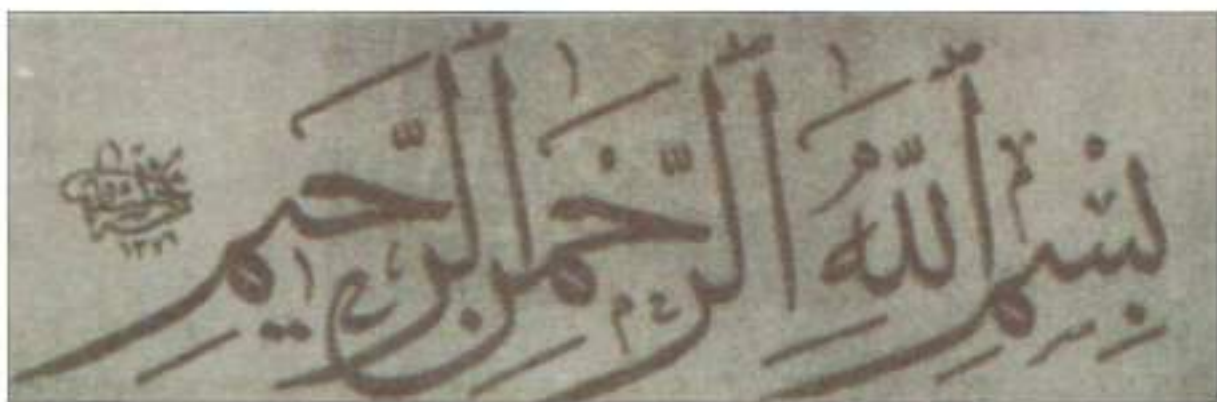 بِسْمِ اللّٰهِ الرَّحْمٰنِ الرَّحِيمِ
١٣٧٩